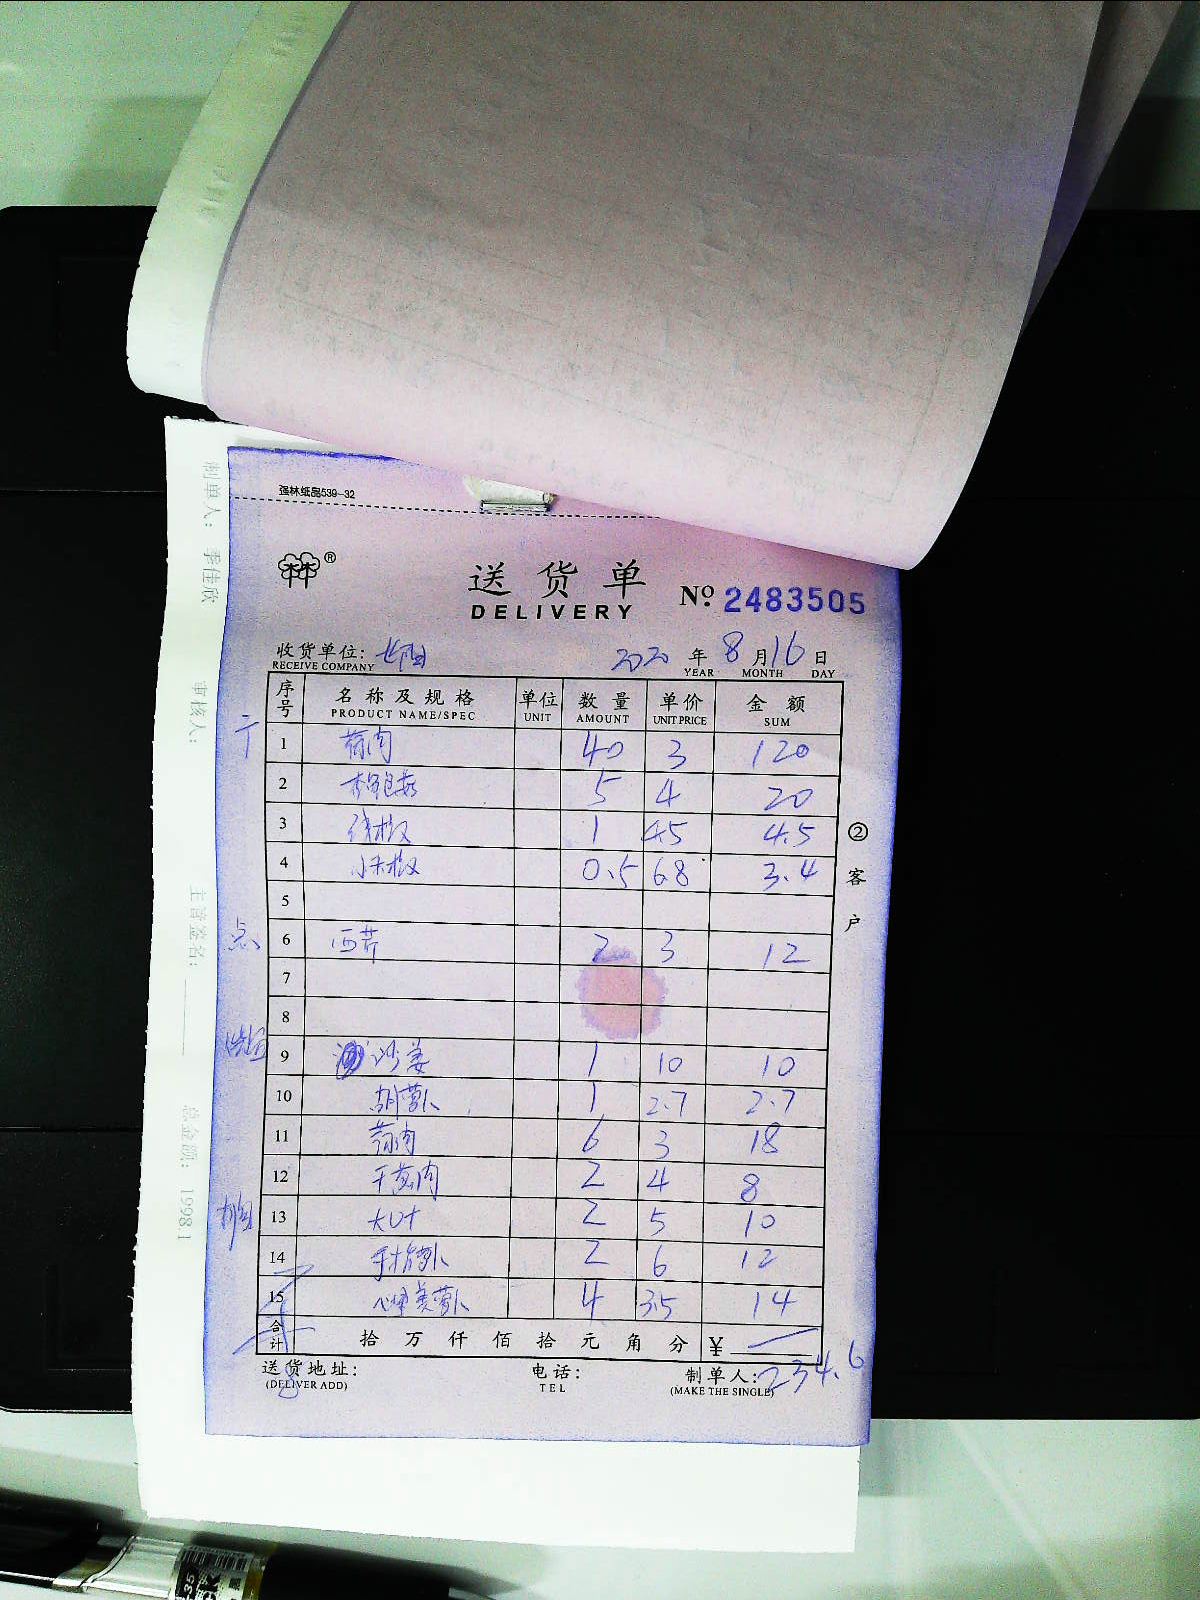 强林纸品539-32
®
送货单
DELIVERY
No. 2483505
收货单位:
RECEIVE COMPANY
2020 年 8 月 16 日
YEAR MONTH DAY
序号 名称及规格 单位 数量 单价 金额
PRODUCT NAME/SPEC UNIT AMOUNT UNIT PRICE SUM
1 荷肉 40 3 120
2 5 4 20
3 线椒 1 4.5 4.5
4 小米椒 0.5 68 3.4
5
6 西芹 2 3 12
7
8
9 沙姜 1 10 10
10 胡萝卜 1 2.7 2.7
11 荷肉 6 3 18
12 干葱肉 2 4 8
13 大叶 2 5 10
14 手指萝卜 2 6 12
15 心里美萝卜 4 3.5 14
合计 拾 万 仟 佰 拾 元 角 分 ¥
234.6
送货地址: 电话: 制单人:
(DELIVER ADD) TEL (MAKE THE SINGLE)
② 客户
制单人: 季佳欣
审核人:
主管签名:
总金额: 1998.1